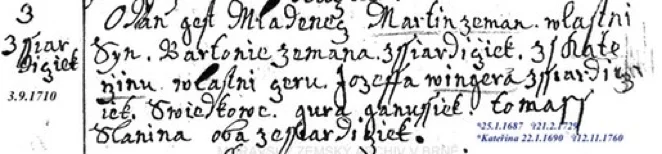 3
z ssiar
digiek
3.9.1710
Odan gest Mladenez Martin zeman. wlastni
Syn. Bartonie zemana. z ssiardigiek. z s kate
ržinu wlastni zeru. Jozeffa wingera z ssiardi
iek. Swiedkowe. gura ganussiek. tomass
Slanina oba ze ssiardigiek.
*25.1.1687 †21.2.1729
*Kateřina 22.1.1690 †12.11.1760
MORAVSKÝ ZEMSKÝ ARCHIV V BRNĚ